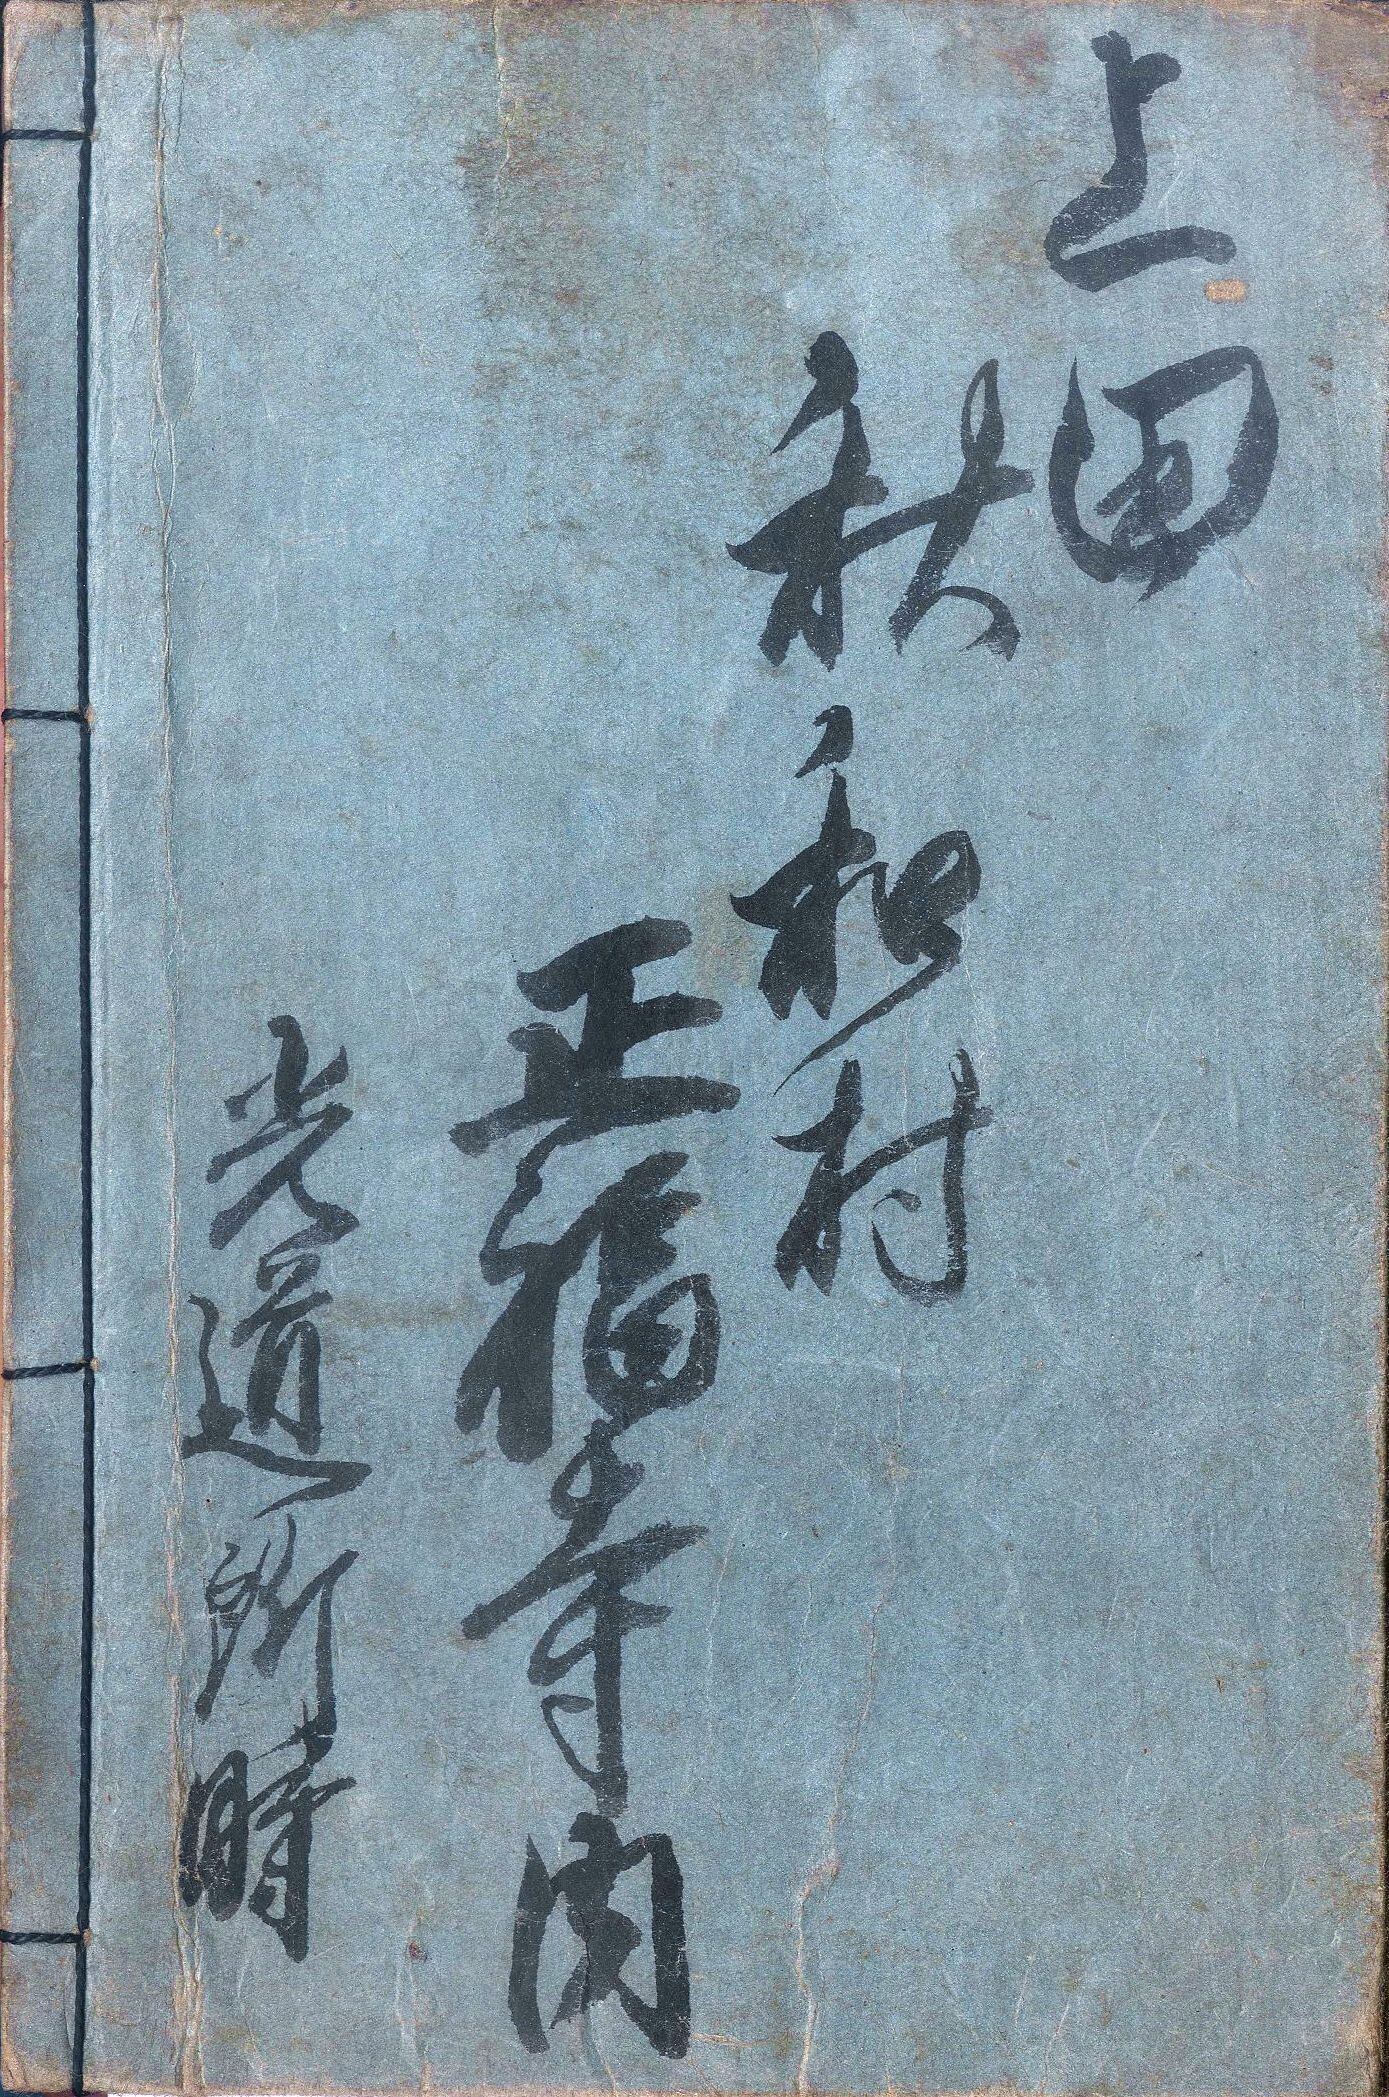 上田
秋和村
正福寺内
光道所時